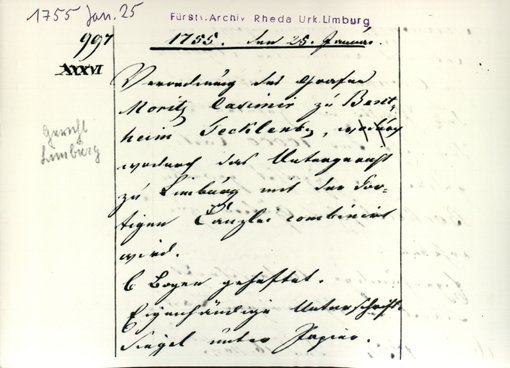 1755 Jan. 25
Fürstl. Archiv Rheda Urk. Limburg
997
1755. den 25. Januar.
XXXVI
Verordnung des Grafen
Moritz Casimir zu Bent-
heim Tecklenb.,
wodurch das Untergericht
zu Limburg mit der dor-
tigen Canzlei combinirt
wird.
6 Bogen geheftet.
Eigenhändige Unterschrift.
Siegel unter Papier.
Gericht
Limburg